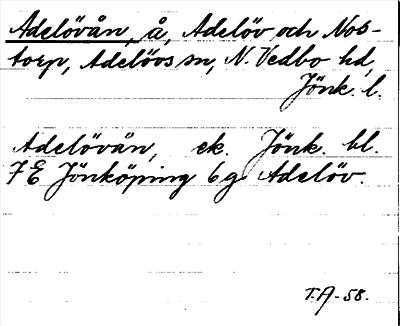 Adelövån, å, Adelöv och Nos-
torp, Adelövs sn, N. Vedbo hd,
Jönk. l.
Adelövån, ek. Jönk. bl.
7 E Jönköping 6 g Adelöv.
T.A-58.